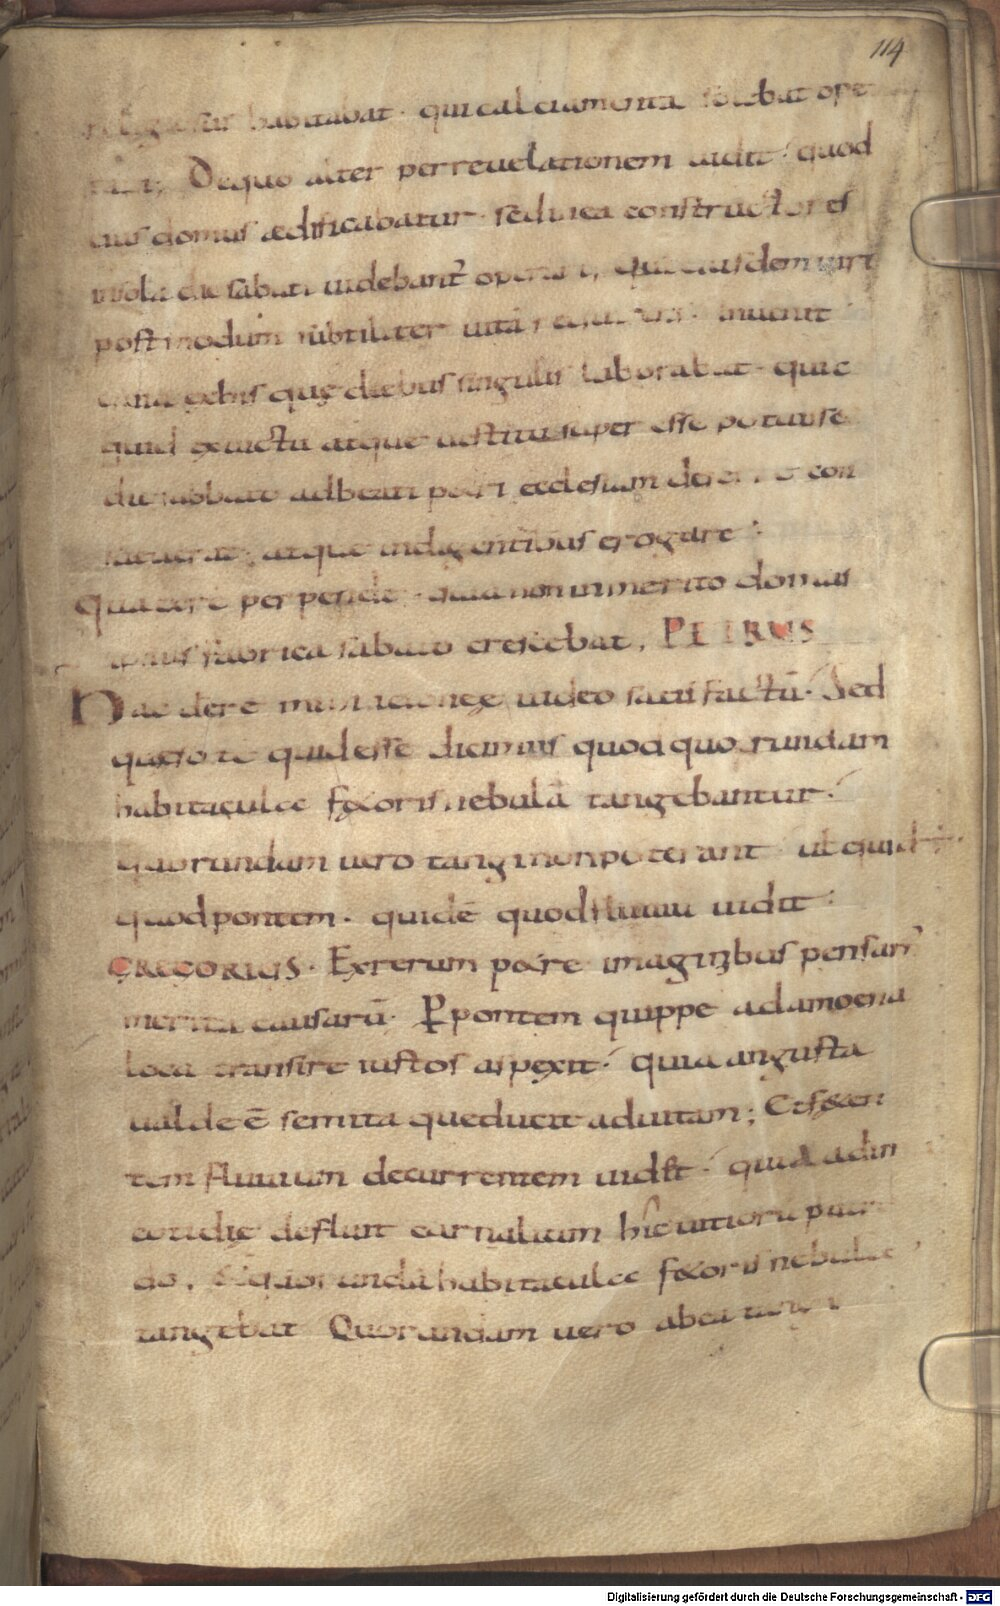 114
habitabat · qui calciamenta solebat ope
De quo alter per reuelationem uidit · quod
eius domus ædificabatur · sed in ea constructores
in sola die sabati uidebant᷑ operari, Qui eiusdem uiri
post modum subtiliter uitā inuenit
ex his quę diebus singulis laborabat · quic
quid ex uictu atque uestitu super esse potuisset
die sabbato ad beati petri ecclesiam deferre con
sueuerat, atque indigentibus erogare ·
Qua ex re perpende · quia non inmerito domus
ipsius fabrica sabato crescebat, PETRUS
Hac de re uideo satis factū · Sed
quęso te quid esse dicimus quod quorundam
habitacula fętoris nebula tangebantur ·
quorundam uero tangi non poterant ut quid ē
quod pontem · quidē quod fluuiū uidit ·
GREGORIUS · Ex rerum petre imaginibus pensam᷑
merita causarū · Ꝑ pontem quippe ad amoena
loca transire iustos aspexit · quia angusta
ualde ē semita que ducit ad uitam; Et fęten
tem fluuium decurrentem uidit · quia ad im
cotidię defluit carnalium hic uitiorū putre
do, Et quorundā habitacula fętoris nebula
tangebat Quorundam uero ab ea tangi
Digitalisierung gefördert durch die Deutsche Forschungsgemeinschaft - DFG